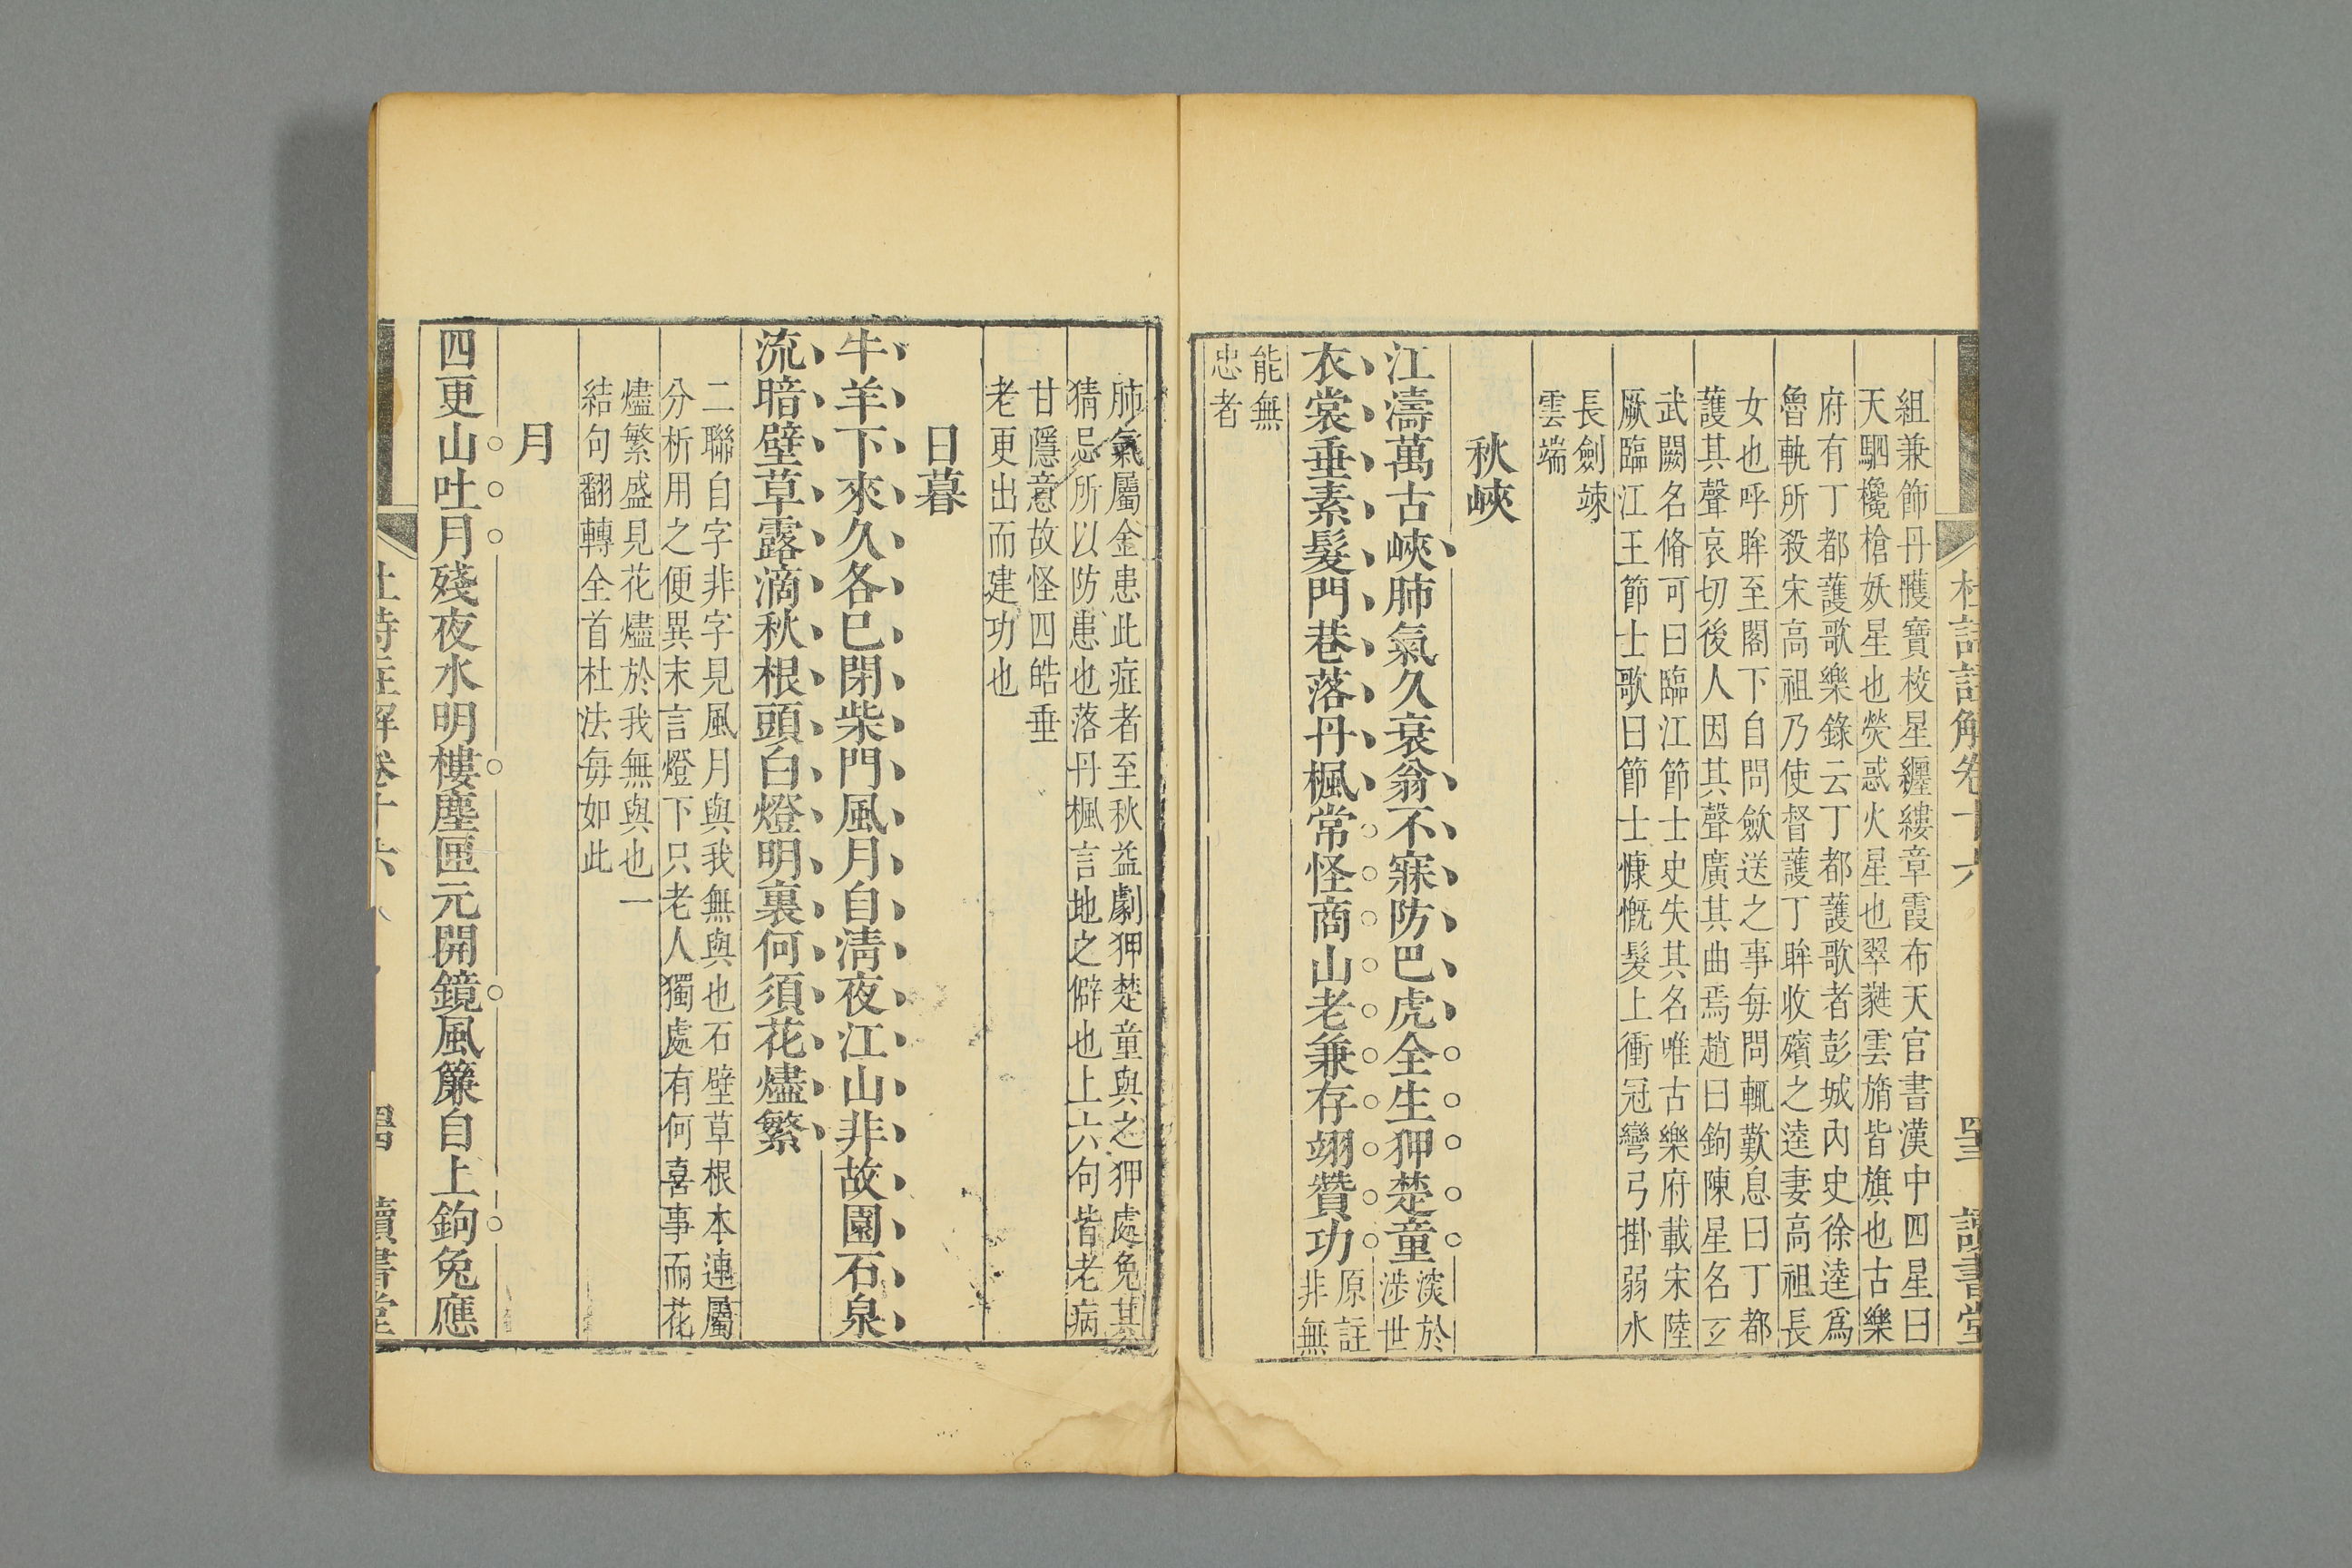 杜詩註解卷十六
讀書堂
組兼飾丹雘寶校星纏縷章霞布天官書漢中四星曰
天駟欃槍妖星也熒惑火星也翠蕤雲旓皆旗也古樂
府有丁都護歌樂錄云丁都護歌者彭城內史徐逵爲
魯軌所殺宋高祖乃使督護丁旿收殯之逵妻高祖長
女也呼旿至閣下自問歛送之事毎問輒歎息曰丁都
護其聲哀切後人因其聲廣其曲焉趙曰鉤陳星名玄
武闕名脩可曰臨江節士史失其名唯古樂府載宋陸
厥臨江王節士歌曰節士慷慨髮上衝冠彎弓掛弱水
長劍竦
雲端
秋峽
江濤萬古峽肺氣久衰翁不寐防巴虎全生狎楚童淡於
涉世
衣裳垂素髮門巷落丹楓常怪商山老兼存翊贊功原註
非無
能無
忠者
肺氣屬金患此症者至秋益劇狎楚童與之狎處免其
猜忌所以防患也落丹楓言地之僻也上六句皆老病
甘隱意故怪四皓垂
老更出而建功也
日暮
牛羊下來久各已閉柴門風月自清夜江山非故園石泉
流暗壁草露滴秋根頭白燈明裏何須花燼繁
二聯自字非字見風月與我無與也石壁草根本連屬
分析用之便異末言燈下只老人獨處有何喜事而花
燼繁盛見花燼於我無與也一
結句翻轉全首杜法毎如此
月
四更山吐月殘夜水明樓塵匣元開鏡風簾自上鉤兔應
杜詩註解卷十六
讀書堂